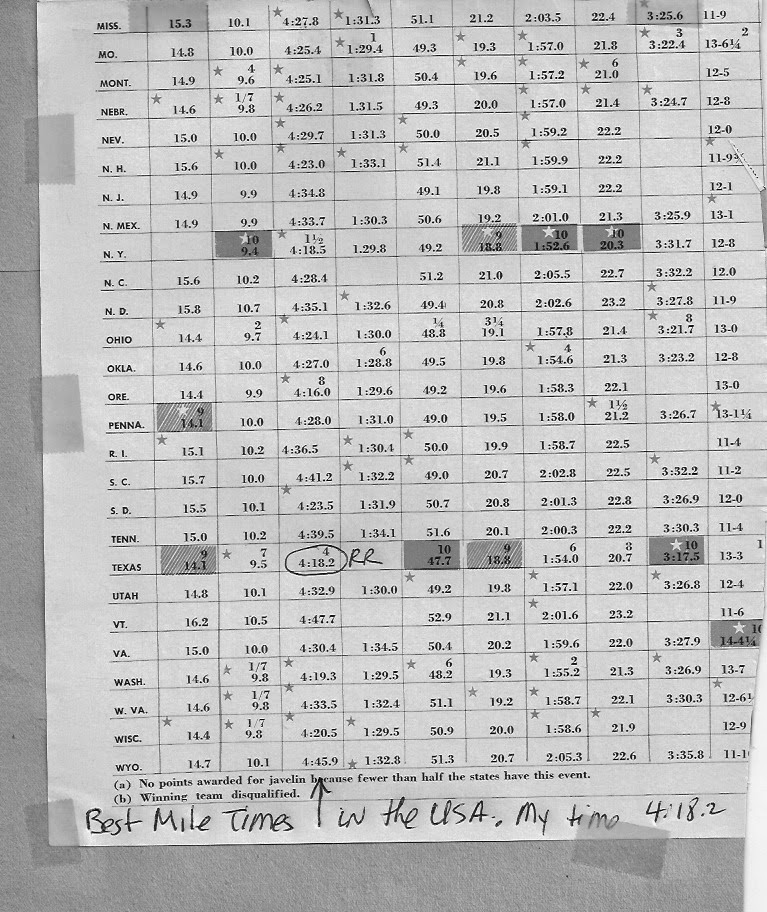 MISS. 15.3 10.1 4:27.8 1:31.3 51.1 21.2 2:03.5 22.4 3:25.6 11-9
1 3 2
MO. 14.8 10.0 4:25.4 1:29.4 49.3 19.3 1:57.0 21.8 3:22.4 13-6¼
4 6
MONT. 14.9 9.6 4:25.1 1:31.8 50.4 19.6 1:57.2 21.0 12-5
1/7
NEBR. 14.6 9.8 4:26.2 1.31.5 49.3 20.0 1:57.0 21.4 3:24.7 12-8
NEV. 15.0 10.0 4:29.7 1:31.3 50.0 20.5 1:59.2 22.2 12-0
N. H. 15.6 10.0 4:23.0 1:33.1 51.4 21.1 1:59.9 22.2
N. J. 14.9 9.9 4:34.8 49.1 19.8 1:59.1 22.2 12-1
N. MEX. 14.9 9.9 4:33.7 1:30.3 50.6 19.2 2:01.0 21.3 3:25.9 13-1
10 1½ 9 10 10
N. Y. 9.4 4:18.5 1.29.8 49.2 18.8 1:52.6 20.3 3:31.7 12-8
N. C. 15.6 10.2 4:28.4 51.2 21.0 2:05.5 22.7 3:32.2 12.0
N. D. 15.8 10.7 4:35.1 1:32.6 49.4 20.8 2:02.6 23.2 3:27.8 11-9
2 ¼ 3¼ 8
OHIO 14.4 9.7 4:24.1 1:30.0 48.8 19.1 1:57.8 21.4 3:21.7 13-0
6 4
OKLA. 14.6 10.0 4:27.0 1:28.8 49.5 19.8 1:54.6 21.3 3:23.2 12-8
8
ORE. 14.4 9.9 4:16.0 1:29.6 49.2 19.6 1:58.3 22.1 13-0
9 1½
PENNA. 14.1 10.0 4:28.0 1:31.0 49.0 19.5 1:58.0 21.2 3:26.7 13-1¼
R. I. 15.1 10.2 4:36.5 1:30.4 50.0 19.9 1:58.7 22.5 11-4
S. C. 15.7 10.0 4:41.2 1:32.2 49.0 20.7 2:02.8 22.5 3:32.2 11-2
S. D. 15.5 10.1 4:23.5 1:31.9 50.7 20.8 2:01.3 22.8 3:26.9 12-0
TENN. 15.0 10.2 4:39.5 1:34.1 51.6 20.1 2:00.3 22.2 3:30.3 11-4
9 7 4 10 9 6 8 10 1
TEXAS 14.1 9.5 4:18.2 RR 47.7 18.8 1:54.0 20.7 3:17.5 13-3
UTAH 14.8 10.1 4:32.9 1:30.0 49.2 19.8 1:57.1 22.0 3:26.8 12-4
VT. 16.2 10.5 4:47.7 52.9 21.1 2:01.6 23.2 11-6
10
VA. 15.0 10.0 4:30.4 1:34.5 50.4 20.2 1:59.6 22.0 3:27.9 14-4¼
1/7 6 2
WASH. 14.6 9.8 4:19.3 1:29.5 48.2 19.3 1:55.2 21.3 3:26.9 13-7
1/7
W. VA. 14.6 9.8 4:33.5 1:32.4 51.1 19.2 1:58.7 22.1 3:30.3
1/7
WISC. 14.4 9.8 4:20.5 1:29.5 50.9 20.0 1:58.6 21.9 12-9
WYO. 14.7 10.1 4:45.9 1:32.8 51.3 20.7 2:05.3 22.6 3:35.8
(a) No points awarded for javelin because fewer than half the states have this event.
(b) Winning team disqualified.
Best Mile Times in the USA. My time 4:18.2